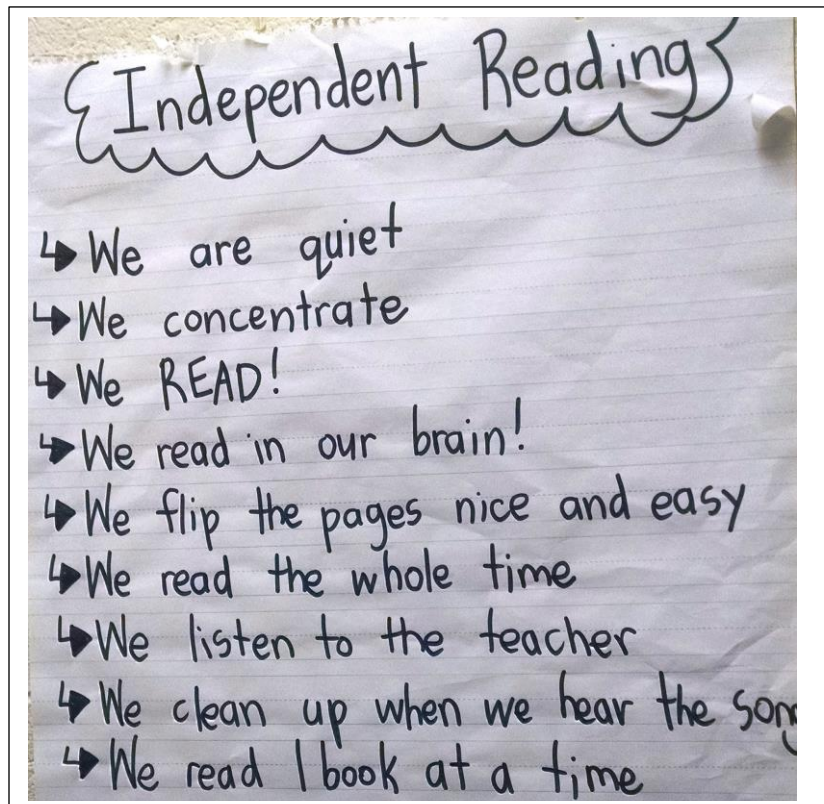 Independent Reading
We are quiet
We concentrate
We READ!
We read in our brain!
We flip the pages nice and easy
We read the whole time
We listen to the teacher
We clean up when we hear the song
We read 1 book at a time